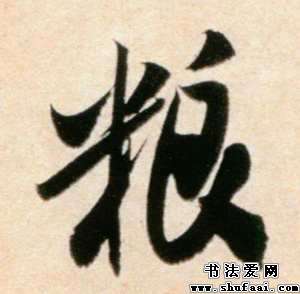 粮
书法爱网
www.shufaai.com